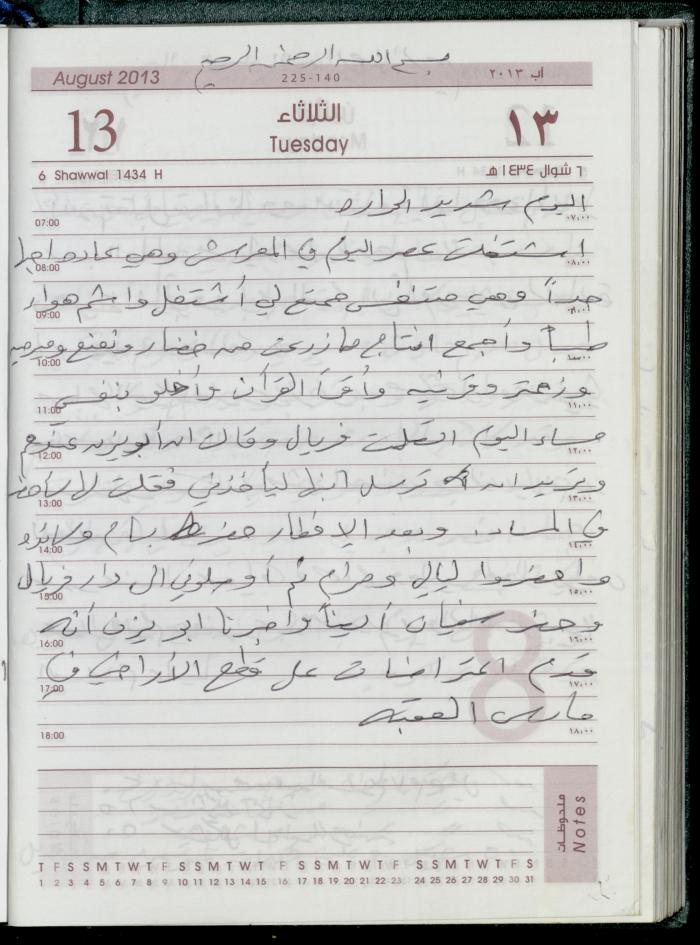 بسم الله الرحمن الرحيم
August 2013 225-140 آب ٢٠١٣
13 الثلاثاء ١٣
Tuesday
6 Shawwal 1434 H ٦ شوال ١٤٣٤ هـ
اليوم شديد الحرارة
07:00 ٠٧,٠٠
اشتغلت عصر اليوم في المعرش وهي عادة احبها
08:00 ٠٨,٠٠
جداً وهي متنفس ممتع لي أشتغل واشم هواء
09:00 ٠٩,٠٠
طيباً وأجمع انتاج ما زرعت من خضار ونعنع وميرمية
10:00 ١٠,٠٠
وزعتر وقرنية وأقرأ القرآن وأخلو بنفسي
11:00 ١١,٠٠
مساء اليوم اتصلت فريال وقالت ان أبو يزن عندهم
12:00 ١٢,٠٠
وتريد ان ترسل ابنها ليأخذني فقلت لها سآتي
13:00 ١٣,٠٠
في المساء وبعد الإفطار حضر بسام
14:00 ١٤,٠٠
وأحضروا ليالي ومرام ثم أوصلوني الى دار فريال
15:00 ١٥,٠٠
وحضر سفيان أيضاً وأخبرنا ابو يزن أنه
16:00 ١٦,٠٠
قدم اعتراضات على قطع الأراضي في
17:00 ١٧,٠٠
مارس العقبة
18:00 ١٨,٠٠
ملحوظات Notes
T F S S M T W T F S S M T W T F S S M T W T F S S M T W T F S
1 2 3 4 5 6 7 8 9 10 11 12 13 14 15 16 17 18 19 20 21 22 23 24 25 26 27 28 29 30 31